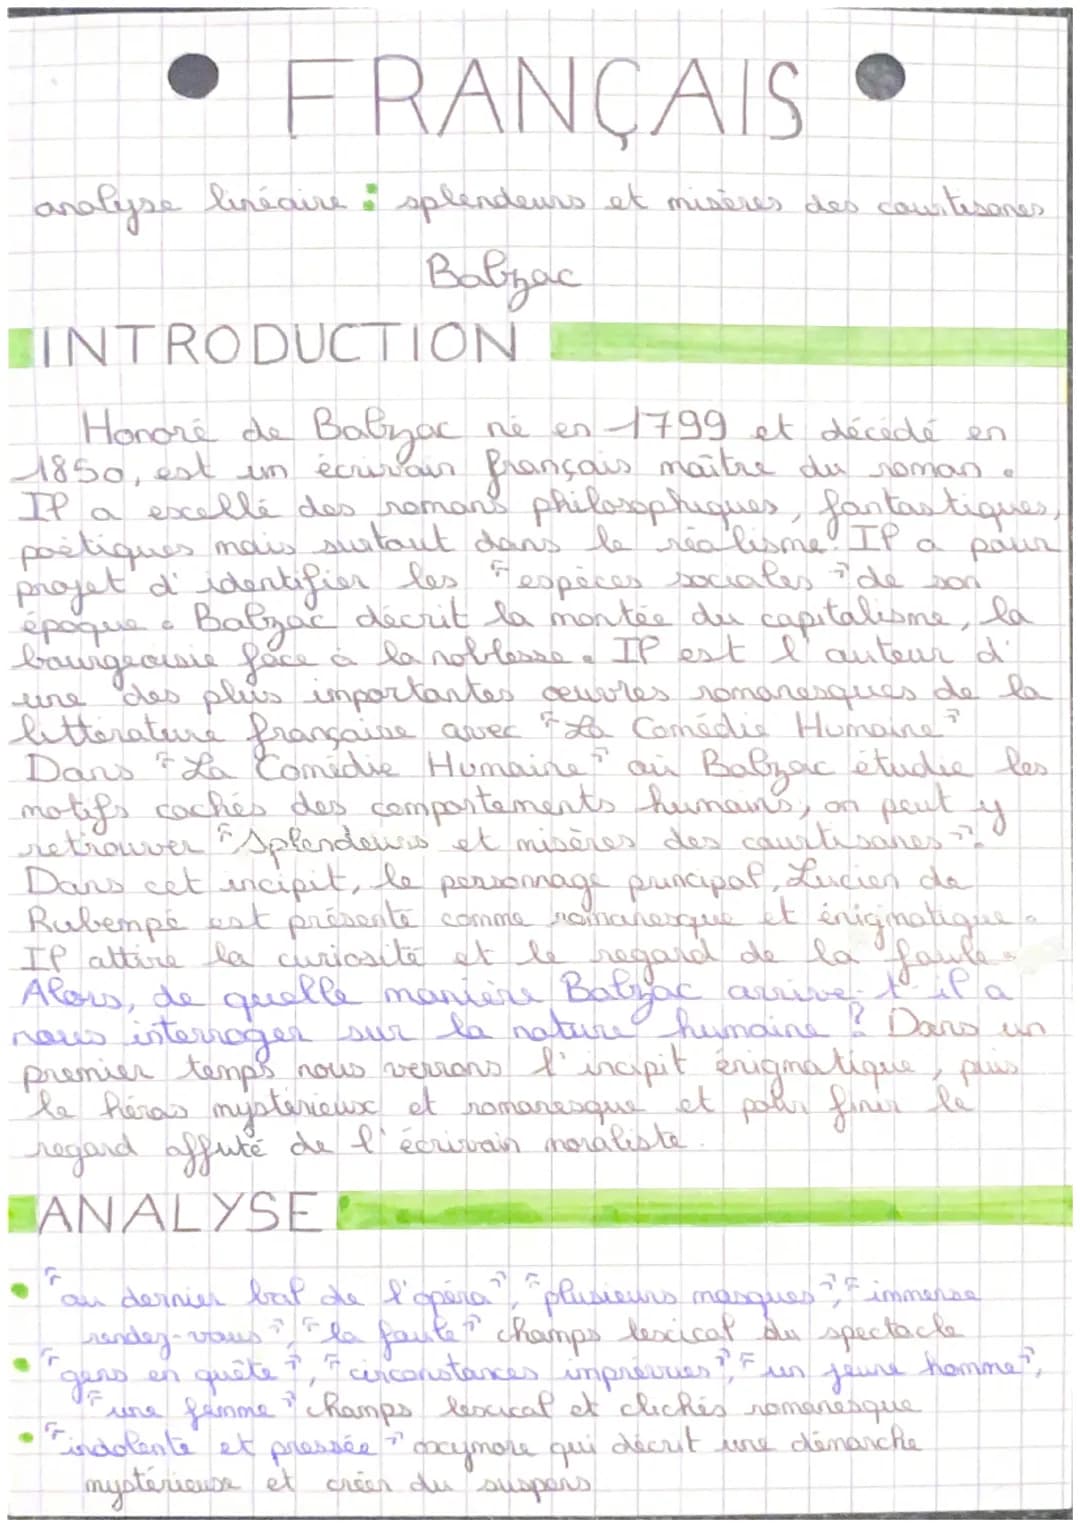 FRANÇAIS
analyse linéaire : splendeurs et misères des courtisanes
Balzac
INTRODUCTION
Honoré de Balzac né en 1799 et décédé en
1850, est un écrivain français maître du roman.
Il a excellé des romans philosophiques, fantastiques,
poètiques mais surtout dans le réalisme. Il a pour
projet d'identifier les "espèces sociales" de son
époque. Balzac décrit la montée du capitalisme, la
bourgeoisie face à la noblesse. Il est l'auteur d'
une des plus importantes œuvres romanesques de la
littérature française avec "La Comédie Humaine"
Dans "La Comédie Humaine" où Balzac étudie les
motifs cachés des comportements humains, on peut y
retrouver "Splendeurs et misères des courtisanes".
Dans cet incipit, le personnage principal, Lucien de
Rubempé est présenté comme romanesque et énigmatique.
Il attire la curiosité et le regard de la foule.
Alors, de quelle manière Balzac arrive-t-il a
nous interroger sur la nature humaine ? Dans un
premier temps nous verrons l'incipit énigmatique, puis
le héros mystérieux et romanesque et pour finir le
regard affuté de l'écrivain moraliste.
ANALYSE
• "au dernier bal de l'opéra", "plusieurs masques", "immense
rendez-vous", "la foule" champs lexical du spectacle
• "gens en quête", "circonstances imprévues", "un jeune homme",
"une femme" champs lexical et clichés romanesque
• "indolente et pressée" oxymore qui décrit une démarche
mystérieuse et créer du suspens